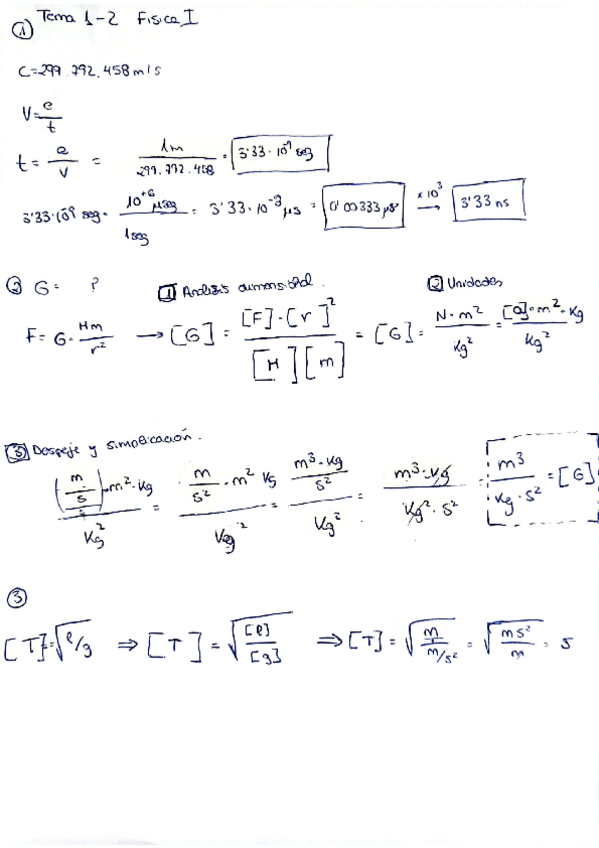 Tema 1-2 Física I
①
C=299.792.458 m/s
V = e/t
t = e/v = 1m/299.792.458 = 3'33·10⁻⁹ seg
3'33·10⁻⁹ seg · 10⁺⁶ μseg/1seg = 3'33·10⁻³ μs = 0'00333 μs ×10³ → 3'33 ns
② G = ? 1 Análisis dimensional. 2 Unidades
F = G · Mm/r² → [G] = [F]·[r]²/[M][m] = [G] = N·m²/Kg² = [a]·m²·Kg/Kg²
3 Despeje y simplificación.
((m/s)/s)·m²·Kg/Kg² = m/s²·m² Kg/Kg² = (m³·Kg/s²)/Kg² = m³·Kg/Kg²·s² = m³/Kg·s² = [G]
③
[T] = √(l/g) ⇒ [T] = √([l]/[g]) ⇒ [T] = √(m/(m/s²)) = √(ms²/m) = s